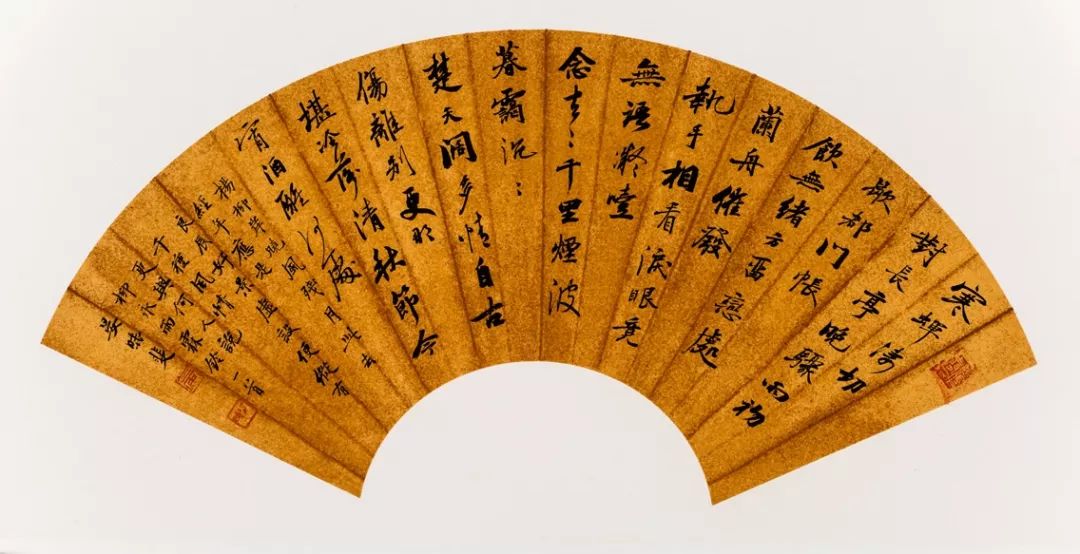 寒蟬淒切
對長亭晚驟雨初
歇都門帳
飲無緒方留戀處
蘭舟催發
執手相看淚眼竟
無語凝噎
念去〻千里煙波
暮靄沉〻
楚天闊多情自古
傷離別更那
堪冷落清秋節今
宵酒醒何處
楊柳岸曉風殘月此去
經年應是
良辰好景虛設便縱有
千種風情
更與何人說
柳永雨霖鈴一首
吳時